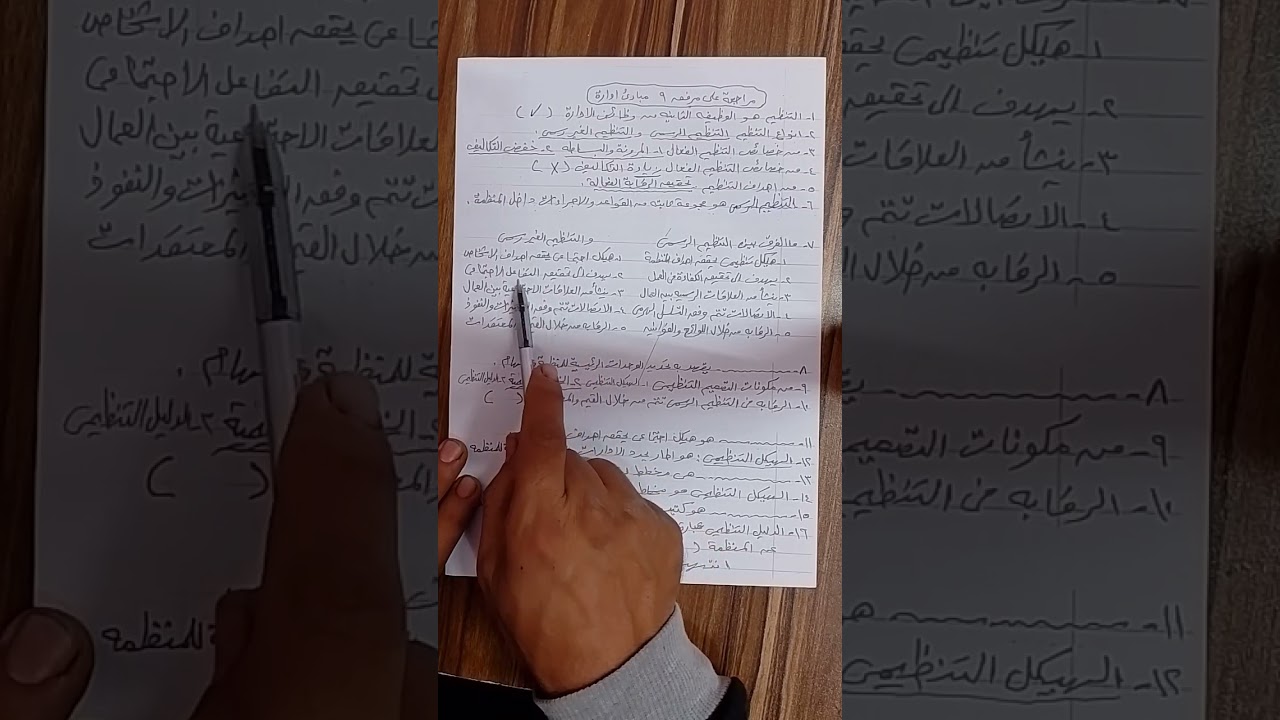 مراجعة على مرفقه ٩ مبادئ ادارة
١- التنظيم هو الوظيفه الثانيه من وظائف الادارة (✓)
٢- انواع التنظيم التنظيم الرسمى والتنظيم الغير رسمى.
٣- من خصائص التنظيم الفعال ١- المرونة والبساطه ٢- خفض التكاليف
٤- من خصائص التنظيم الفعال زيادة التكاليف (X)
٥- من اهداف التنظيم. تحقيق الرقابة الفعالة.
٦- التنظيم الرسمى هو مجموعة من القواعد والاجراءات داخل المنظمة.
٧- ما الفرق بين التنظيم الرسمى والتنظيم الغير رسمى
١- هيكل تنظيمى يحقق اهداف المنظمة ١- هيكل اجتماعى يحقق اهداف الاشخاص
٢- يهدف الى تحقيق الكفاءة فى العمل ٢- يهدف الى تحقيق التفاعل الاجتماعى
٣- ينشأ من العلاقات الرسميه بين العمال ٣- ينشأ من العلاقات الاجتماعية بين العمال
٤- الاتصالات تتم وفق التسلسل الهرمى ٤- الاتصالات تتم وفق والنفوذ
٥- الرقابه من خلال اللوائح والقوانين ٥- الرقابه من خلال المعتقدات
٨- يقصد به تحديد الوحدات الرئيسية للمنظمة
٩- من مكونات التصميم التنظيمى ١- الهيكل التنظيمى ٢- ٣- الدليل التنظيمى
١٠- الرقابه فى التنظيم الرسمى تتم من خلال القيم ( )
١١- هو هيكل اجتماعى يحقق اهداف
١٢- الهيكل التنظيمى: هو اطار يحدد الادارات للمنظمه
١٣- هى مخطط
١٤- الهيكل التنظيمى هو مخطط
١٥- هو كتيب
١٦- الدليل التنظيمى عبارة
عن المنظمة (